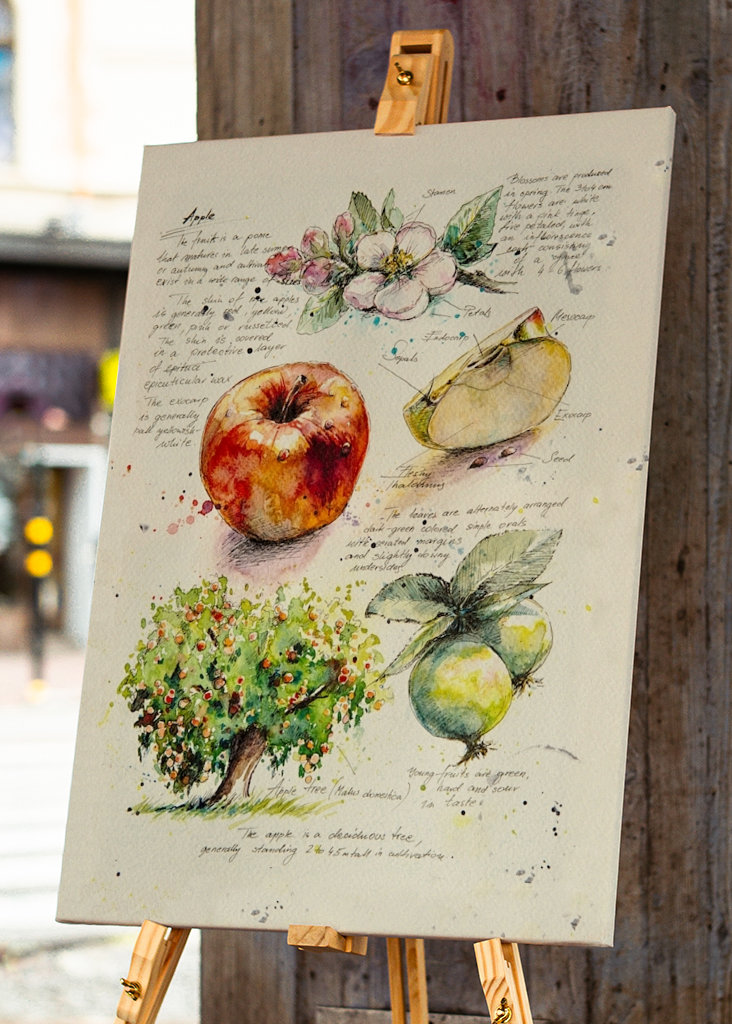 Apple
The fruit is a pome
that matures in late summer
or autumn and cultivars
exist in a wide range of sizes
The skin of ripe apples
is generally red, yellow,
green, pink or russetted.
The skin is covered
in a protective layer
of epicuticular wax
The exocarp
is generally
pale yellowish-
white.
Stamen
Petals
Blossoms are produced
in spring. The 3 to 4 cm
flowers are white
with a pink tinge,
five petaled, with
an inflorescence
consisting
of a
with 4-6 flowers
Mesocarp
Endocarp
Sepals
Exocarp
Seed
Fleshy
Thalamus
The leaves are alternately arranged
dark-green colored simple ovals
with serrated margins
and slightly downy
undersides.
Apple tree (Malus domestica)
Young fruits are green,
hard and sour
in taste.
The apple is a deciduous tree,
generally standing 2 to 4.5 m tall in cultivation.